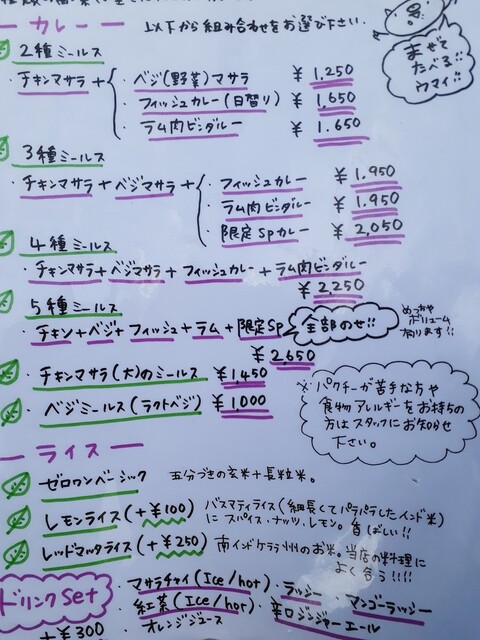 ーカレーー 以下から組み合わせをお選び下さい。
まぜて
たべる!!
ウマイ!!
2種ミールス
・チキンマサラ+
・ベジ(野菜)マサラ ¥1,250
・フィッシュカレー(日替り) ¥1,650
・ラム肉ビンダルー ¥1.650
3種ミールス
・チキンマサラ+ベジマサラ+
・フィッシュカレー ¥1,950
・ラム肉ビンダルー ¥1,950
・限定Spカレー ¥2,050
4種ミールス
・チキンマサラ+ベジマサラ+フィッシュカレー+ラム肉ビンダルー
¥2,250
5種ミールス
・チキン+ベジ+フィッシュ+ラム+限定Sp
全部のせ!!
めっちゃ
ボリューム
有ります!!
¥2,650
・チキンマサラ(大)のミールス ¥1450
・ベジミールス(ラクトベジ) ¥1,000
※パクチーが苦手な方や
食物アレルギーをお持ちの
方はスタッフにお知らせ
下さい。
ーライスー
ゼロワンベーシック 五分づきの玄米+長粒米。
レモンライス(+¥100) バスマティライス(細長くてパラパラしたインド米)
にスパイス・ナッツ、レモン。香ばしい!!
レッドマッタライス(+¥250) 南インドケララ州のお米。当店の料理に
よく合う!!!!
ドリンクset
+¥300
・マサラチャイ(Ice/hot)・ラッシー・マンゴーラッシー
・紅茶(Ice/hot)・辛口ジンジャーエール
・オレンジジュース